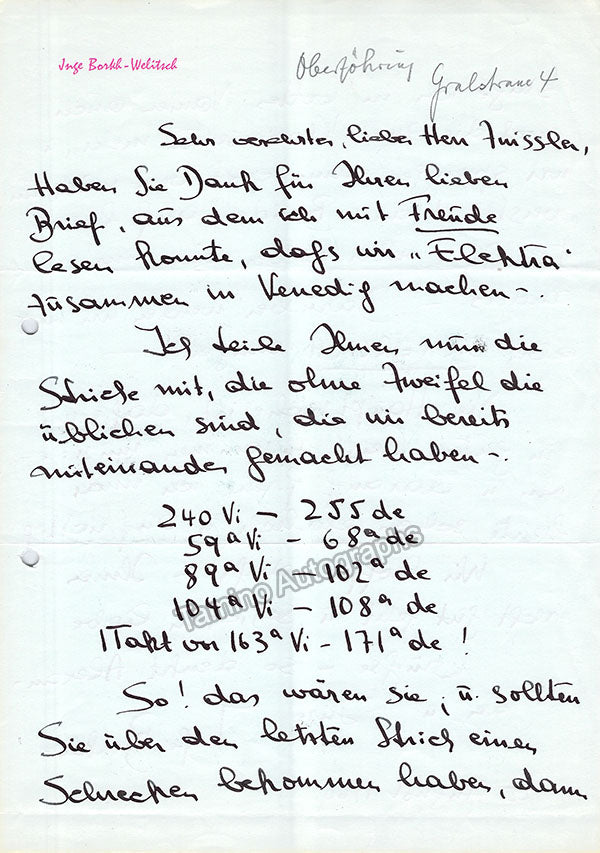 Inge Borkh-Welitsch
Oberföhring
Gralstrasse 4
Sehr verehrter, lieber Herr
Haben Sie Dank für Ihren lieben
Brief, aus dem ich mit Freude
lesen konnte, daſs wir „Elektra“
zusammen in Venedig machen -.
Ich teile Ihnen nun die
Striche mit, die ohne Zweifel die
üblichen sind, die wir bereits
miteinander gemacht haben -.
240 Vi - 255 de
59a Vi - 68a de
89a Vi - 102a de
104a Vi - 108a de
1 Takt vor 163a Vi - 171a de !
Tamino Autographs
So! das wären sie, u. sollten
Sie über den letzten Strich einen
Schrecken bekommen haben, dann